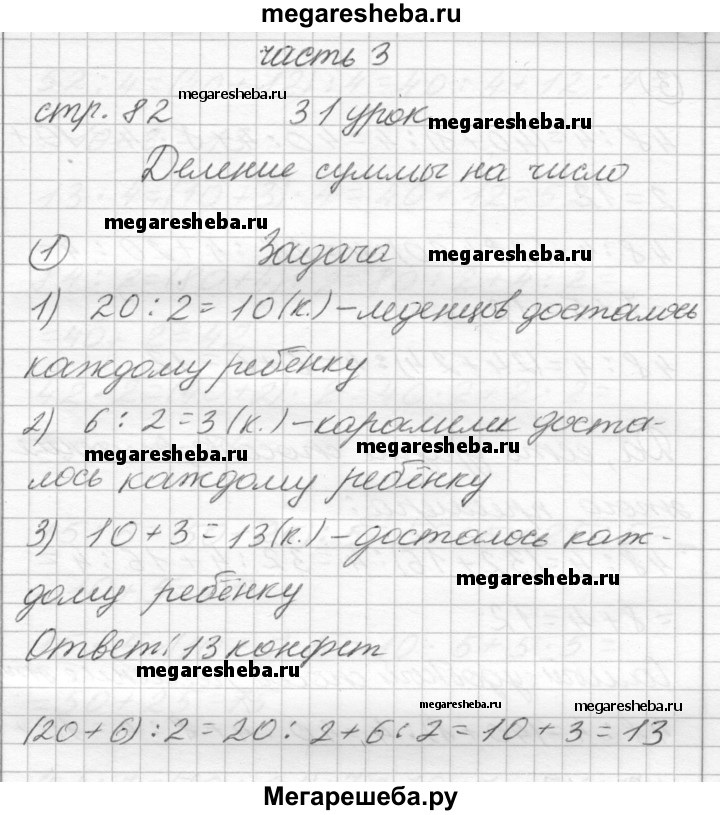 megaresheba.ru
часть 3
стр. 82 megaresheba.ru 31 урок megaresheba.ru
Деление суммы на число
megaresheba.ru
① Задача megaresheba.ru
1) 20 : 2 = 10 (к.) – леденцов досталось
каждому ребёнку
2) 6 : 2 = 3 (к.) – карамелек доста-
megaresheba.ru megaresheba.ru
лось каждому ребёнку
3) 10 + 3 = 13 (к.) – досталось каж-
megaresheba.ru
дому ребёнку
Ответ: 13 конфет
megaresheba.ru
megaresheba.ru megaresheba.ru
(20 + 6) : 2 = 20 : 2 + 6 : 2 = 10 + 3 = 13
Мегарешеба.ру